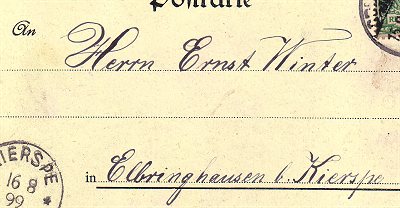 Postkarte
An
Herrn Ernst Winter
in Elbringhausen b. Kierspe
KIERSPE
16 8
99 *